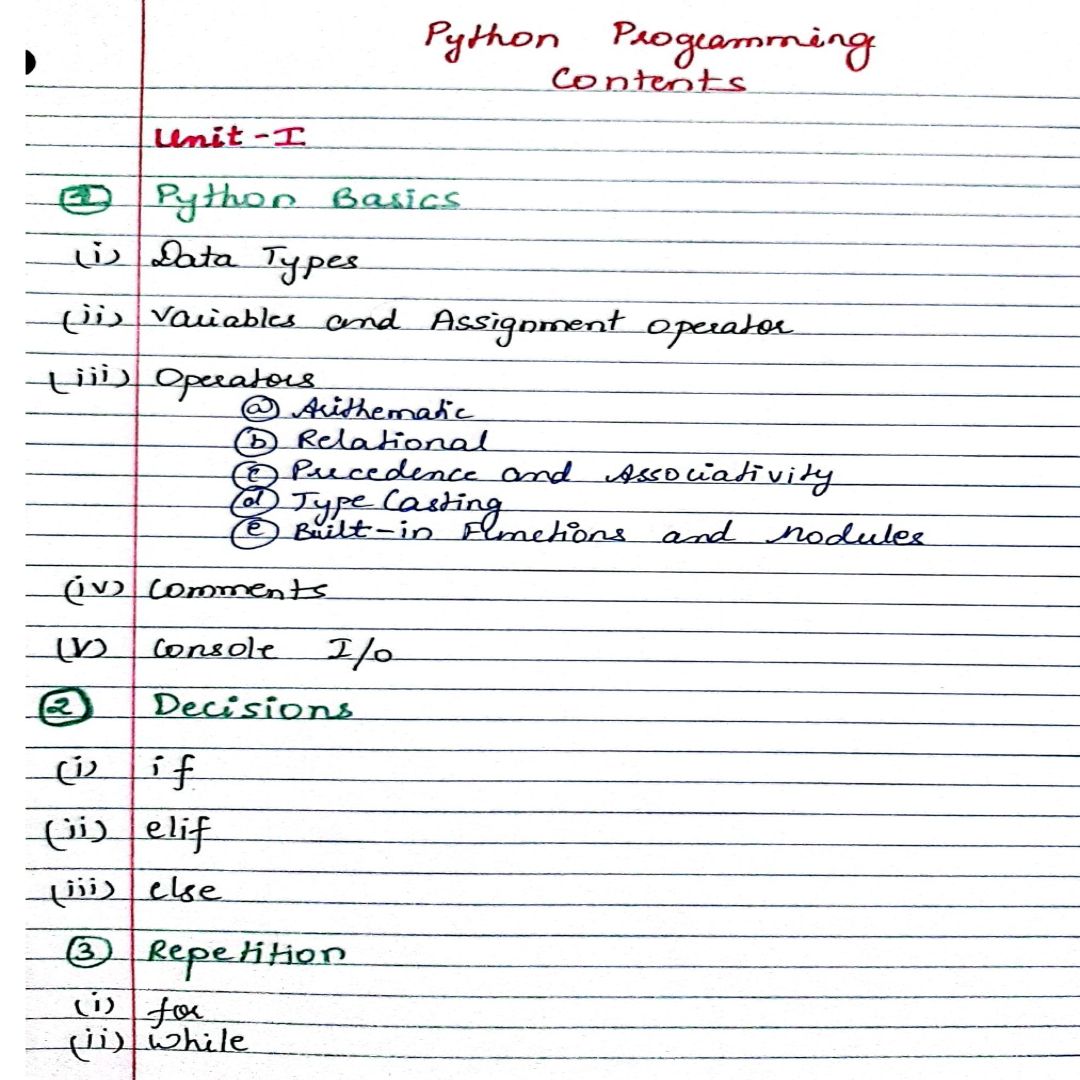 Python Programming
Contents
Unit - I
① Python Basics
(i) Data Types
(ii) Variables and Assignment operator
(iii) Operators
ⓐ Arithematic
ⓑ Relational
ⓒ Precedence and Associativity
ⓓ Type Casting
ⓔ Built-in Functions and nodules
(iv) Comments
(V) Console I/O
② Decisions
(i) if
(ii) elif
(iii) else
③ Repetition
(i) for
(ii) while